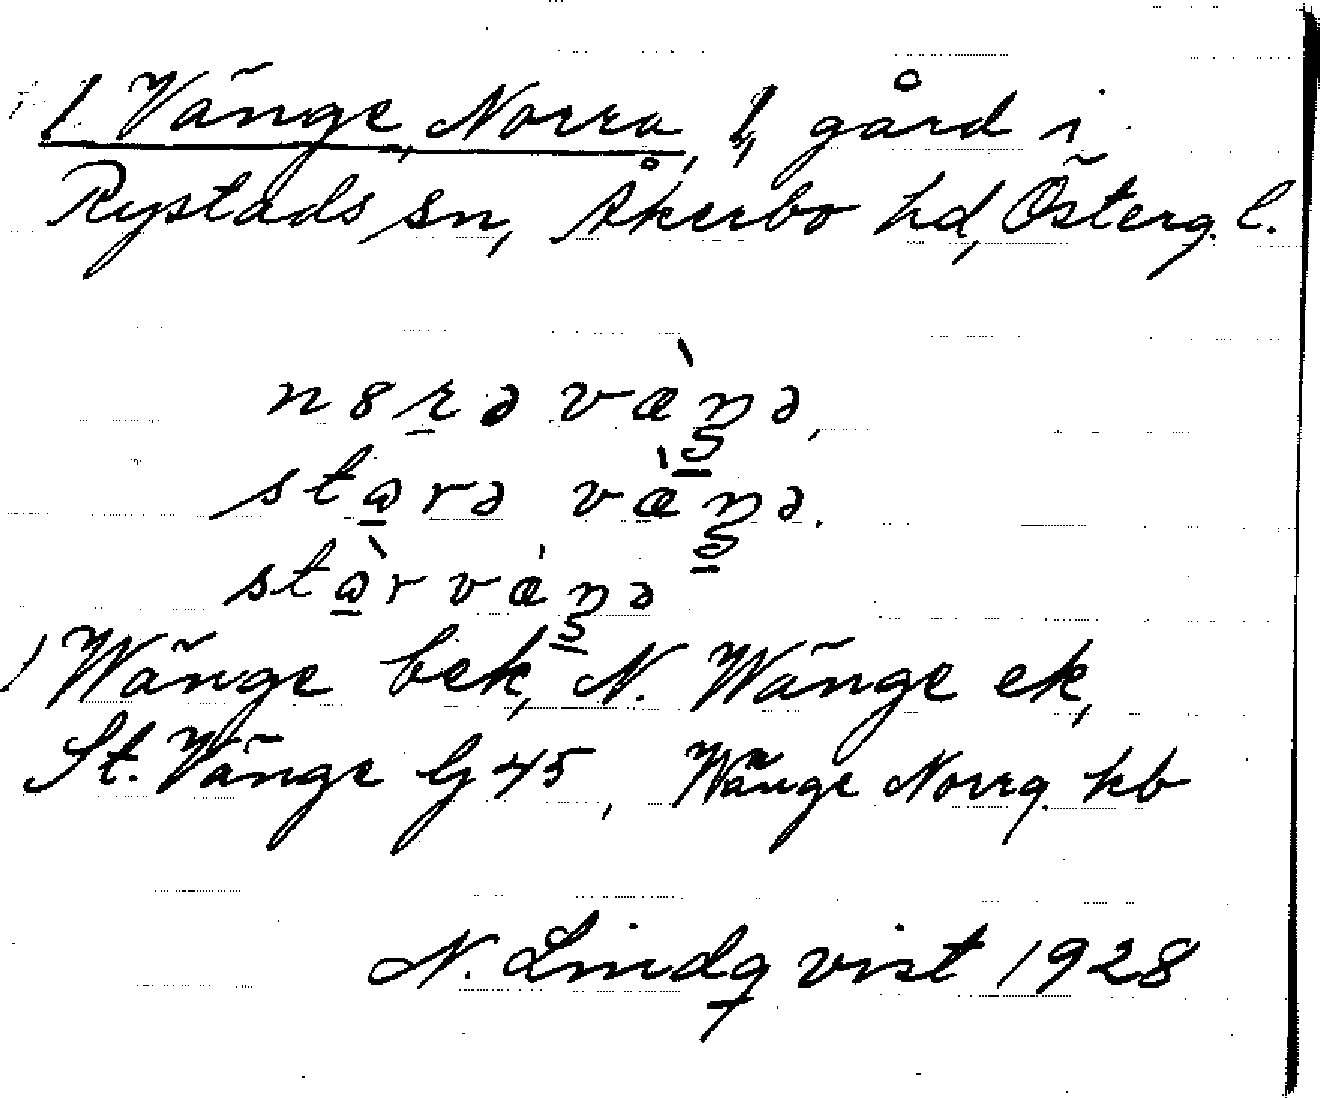 1 Vänge, Norra, 1, gård i
Rystads sn, Åkerbo hd, Österg. l.
n8rə væ̀ŋə,
stɑrə væ̀ŋə.
stɑ̀r væ´ŋə
1) Wänge bek, N. Wänge ek,
St. Vänge G 45, Wänge Norrg. kb
N. Lindqvist 1928